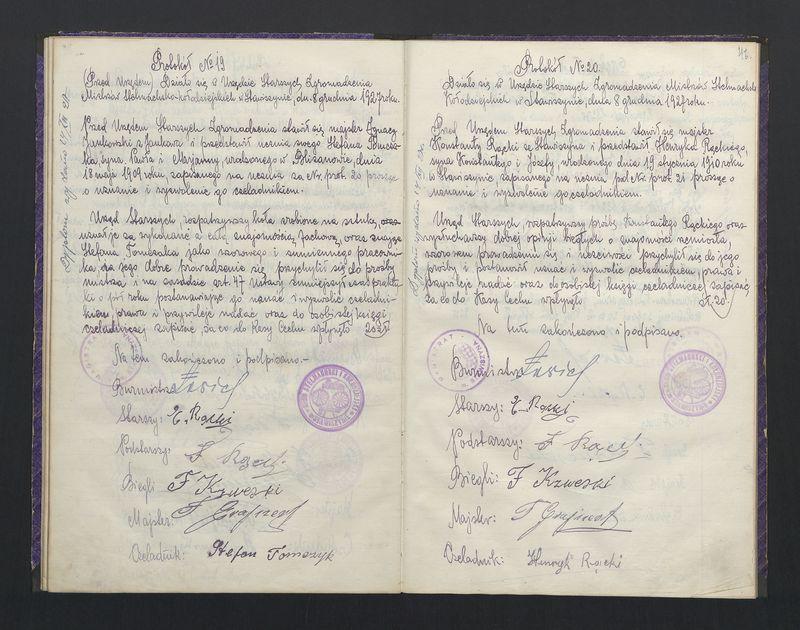 Protokół № 19
(Przed Urzędem) Działo się w Urzędzie Starszych Zgromadzenia
Mistrzów Stelmachsko-kołodziejskich w Stawiszynie, dn. 8 grudnia 1927 roku.
Przed Urzędem Starszych Zgromadzenia stawił się majster Ignacy
Jankowski z Jankowa i przedstawił ucznia swego Stefana
syna Pawła i Marjanny urodzonego w Blizanowie, dnia
18 maja 1909 roku, zapisanego na ucznia za Nr. prot. 20 prosząc
o uznanie i wyzwolenie go czeladnikiem.
Urząd Starszych rozpatrzywszy koła zrobione na sztukę, oraz
uznał je za wykonane z całą znajomością fachową, oraz znając
Stefana Tomczaka jako wzorowego i sumiennego pracowni-
ka, za jego dobre prowadzenie się, przychylił się do prośby
mistrza i na zasadzie art. 47 ustawy
o pół roku postanawiając go uznać i wyzwolić czeladni-
kiem, prawa i przywileje nadać oraz do osobistej księgi
czeladniczej zapisać za co do Kasy Cechu wpłynęło 20 zł
Na tem zakończono i podpisano.-
Burmistrz
Starszy: K. Rącki
Podstarszy: J. Rącki
Biegli F Kzweski
Majster:
Czeladnik: Stefan Tomczyk
46.
Protokół № 20.
Działo się w Urzędzie Starszych Zgromadzenia Mistrzów Stelmachsko
Kołodziejskich w Stawiszynie, dnia 8 grudnia 1927 roku.
Przed Urzędem Starszych Zgromadzenia stawił się majster
Konstanty Rącki ze Stawiszyna i przedstawił Henryka Rąckiego,
syna Konstantego i Józefy, urodzonego dnia 19 stycznia 1910 roku
w Stawiszynie, zapisanego na ucznia pod Nr. prot. 21 prosząc o
uznanie i wyzwolenie go czeladnikiem.
Urząd Starszych rozpatrzywszy prośbę Konstantego Rąckiego oraz
wysłuchawszy dobrej opinji biegłych o znajomości rzemiosła,
wzorowem prowadzeniu się i uczciwości przychylił się do jego
prośby i postanowił uznać i wyzwolić czeladnikiem, prawa i
przywileje nadać oraz do osobistej księgi czeladniczej zapisać,
za co do Kasy Cechu wpłynęło zł. 20.
Na tem zakończono i podpisano.
Burmistrz
Starszy: K. Rącki
Podstarszy: J. Rącki
Biegli: F Kzweski
Majster:
Czeladnik: Henryk Rącki